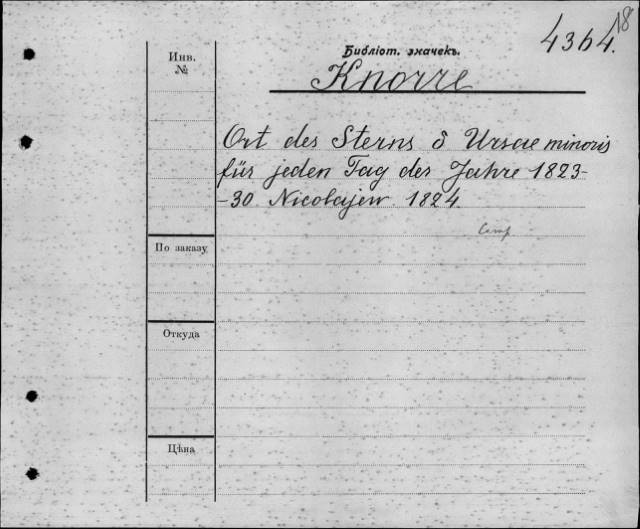 18
4364.
Библіот. значекъ.
Инв.
№
Knorre
Ort des Sterns δ Ursae minoris
für jeden Tag der Jahre 1823-
-30 Nicolajew 1824.
По заказу
Откуда
Цѣна